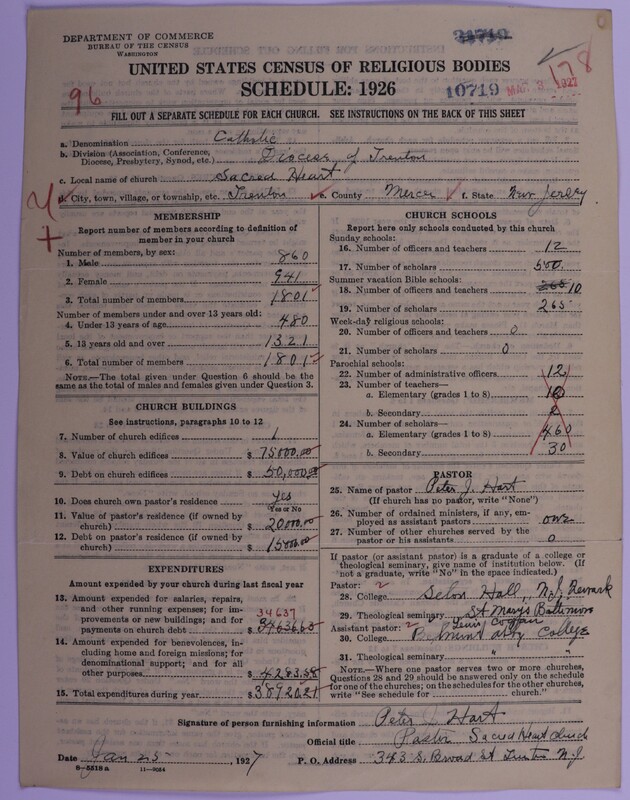 DEPARTMENT OF COMMERCE
BUREAU OF THE CENSUS
WASHINGTON
UNITED STATES CENSUS OF RELIGIOUS BODIES
SCHEDULE: 1926
96
10719
MAR 3 1927
178
FILL OUT A SEPARATE SCHEDULE FOR EACH CHURCH. SEE INSTRUCTIONS ON THE BACK OF THIS SHEET
a. Denomination Catholic
b. Division (Association, Conference, Diocese, Presbytery, Synod, etc.) Diocese of Trenton
c. Local name of church Sacred Heart
d. City, town, village, or township, etc. Trenton e. County Mercer f. State New Jersey
MEMBERSHIP
Report number of members according to definition of member in your church
Number of members, by sex:
1. Male 860
2. Female 941
3. Total number of members 1801
Number of members under and over 13 years old:
4. Under 13 years of age 480
5. 13 years old and over 1321
6. Total number of members 1801
NOTE.—The total given under Question 6 should be the same as the total of males and females given under Question 3.
CHURCH BUILDINGS
See instructions, paragraphs 10 to 12
7. Number of church edifices 1
8. Value of church edifices $ 75000.00
9. Debt on church edifices $ 50,000.00
10. Does church own pastor's residence yes
Yes or No
11. Value of pastor's residence (if owned by church) $ 20000.00
12. Debt on pastor's residence (if owned by church) $ 15000.00
EXPENDITURES
Amount expended by your church during last fiscal year
13. Amount expended for salaries, repairs, and other running expenses; for improvements or new buildings; and for payments on church debt $ 34636.63
34637
14. Amount expended for benevolences, including home and foreign missions; for denominational support; and for all other purposes $ 4283.58
15. Total expenditures during year $ 38920.21
CHURCH SCHOOLS
Report here only schools conducted by this church
Sunday schools:
16. Number of officers and teachers 12
17. Number of scholars 500
Summer vacation Bible schools:
18. Number of officers and teachers 265 10
19. Number of scholars 265
Week-day religious schools:
20. Number of officers and teachers 0
21. Number of scholars 0
Parochial schools:
22. Number of administrative officers 12
23. Number of teachers—
a. Elementary (grades 1 to 8) 10
b. Secondary 2
24. Number of scholars—
a. Elementary (grades 1 to 8) 460
b. Secondary 30
PASTOR
25. Name of pastor Peter J. Hart
(If church has no pastor, write "None")
26. Number of ordained ministers, if any, employed as assistant pastors one
27. Number of other churches served by the pastor or his assistants 0
If pastor (or assistant pastor) is a graduate of a college or theological seminary, give name of institution below. (If not a graduate, write "No" in the space indicated.)
Pastor: 2
28. College Seton Hall, N.J. Newark
29. Theological seminary St Marys Baltimore
Assistant pastor: 2
30. College Belmint Abby College
31. Theological seminary " "
NOTE.—Where one pastor serves two or more churches, Questions 28 and 29 should be answered only on the schedule for one of the churches; on the schedules for the other churches, write "See schedule for church."
Signature of person furnishing information Peter J. Hart
Official title Pastor Sacred Heart Church
Date Jan 25, 1927 P. O. Address 343 S. Broad St Trenton N.J.
8-5518a 11-9084